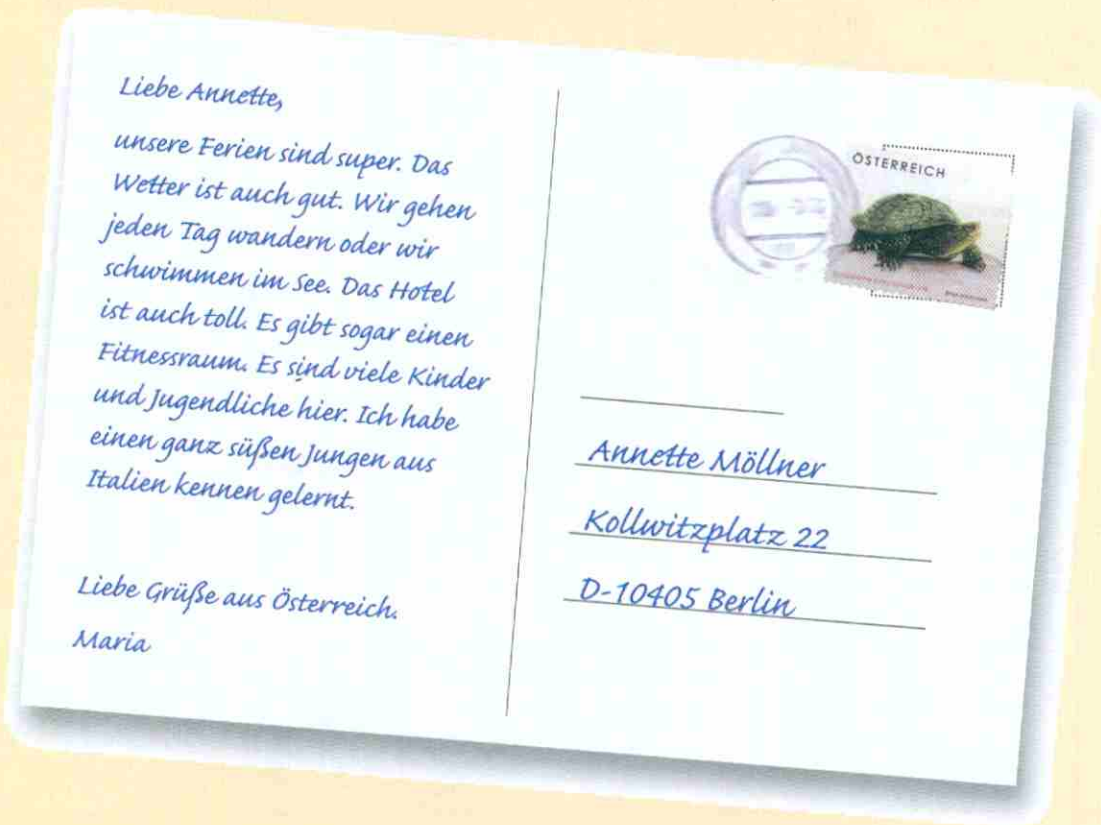 Liebe Annette,
unsere Ferien sind super. Das
Wetter ist auch gut. Wir gehen
jeden Tag wandern oder wir
schwimmen im See. Das Hotel
ist auch toll. Es gibt sogar einen
Fitnessraum. Es sind viele Kinder
und Jugendliche hier. Ich habe
einen ganz süßen Jungen aus
Italien kennen gelernt.
Liebe Grüße aus Österreich.
Maria
ÖSTERREICH
Annette Möllner
Kollwitzplatz 22
D-10405 Berlin